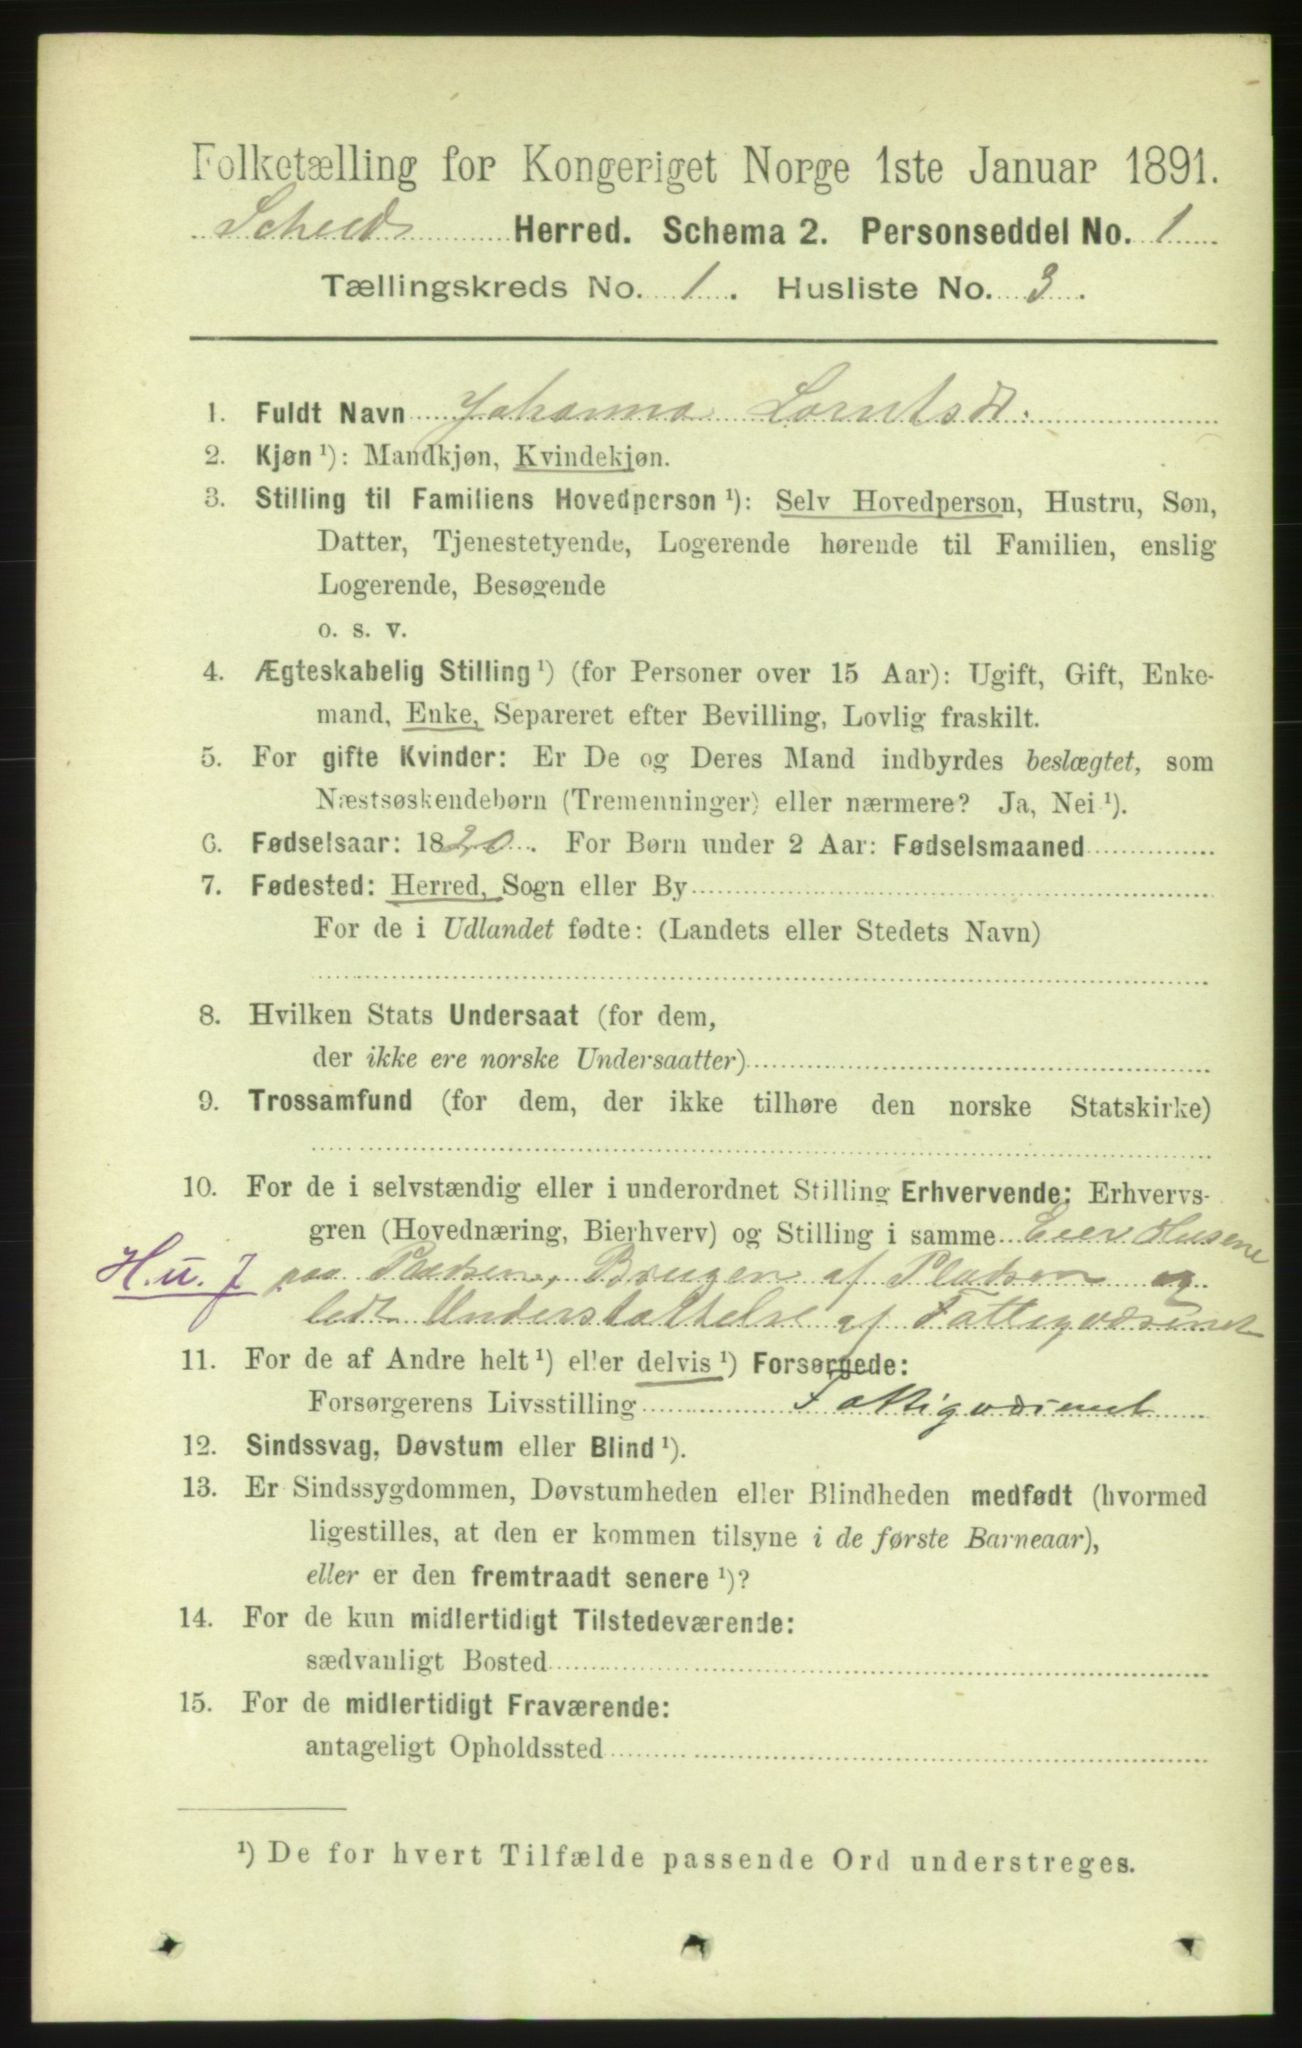 Folketælling for Kongeriget Norge 1ste Januar 1891.
Herred. Schema 2. Personseddel No. 1
Tællingskreds No. 1. Husliste No. 3.
1. Fuldt Navn Johanna Lorntsd.
2. Kjøn ¹): Mandkjøn, Kvindekjøn.
3. Stilling til Familiens Hovedperson ¹): Selv Hovedperson, Hustru, Søn,
Datter, Tjenestetyende, Logerende hørende til Familien, enslig
Logerende, Besøgende
o. s. v.
4. Ægteskabelig Stilling ¹) (for Personer over 15 Aar): Ugift, Gift, Enke-
mand, Enke, Separeret efter Bevilling, Lovlig fraskilt.
5. For gifte Kvinder: Er De og Deres Mand indbyrdes beslægtet, som
Næstsøskendebørn (Tremenninger) eller nærmere? Ja, Nei ¹).
6. Fødselsaar: 1820. For Børn under 2 Aar: Fødselsmaaned
7. Fødested: Herred, Sogn eller By
For de i Udlandet fødte: (Landets eller Stedets Navn)
8. Hvilken Stats Undersaat (for dem,
der ikke ere norske Undersaatter)
9. Trossamfund (for dem, der ikke tilhøre den norske Statskirke)
10. For de i selvstændig eller i underordnet Stilling Erhvervende: Erhvervs-
gren (Hovednæring, Bierhverv) og Stilling i samme Eier Husene
H. u. J paa Pladsen, Brugen af Pladsen og
lidt Understøttelse af Fattigvæsenet
11. For de af Andre helt ¹) eller delvis ¹) Forsørgede:
Forsørgerens Livsstilling Fattigvæsenet
12. Sindssvag, Døvstum eller Blind ¹).
13. Er Sindssygdommen, Døvstumheden eller Blindheden medfødt (hvormed
ligestilles, at den er kommen tilsyne i de første Barneaar),
eller er den fremtraadt senere ¹)?
14. For de kun midlertidigt Tilstedeværende:
sædvanligt Bosted
15. For de midlertidigt Fraværende:
antageligt Opholdssted
¹) De for hvert Tilfælde passende Ord understreges.